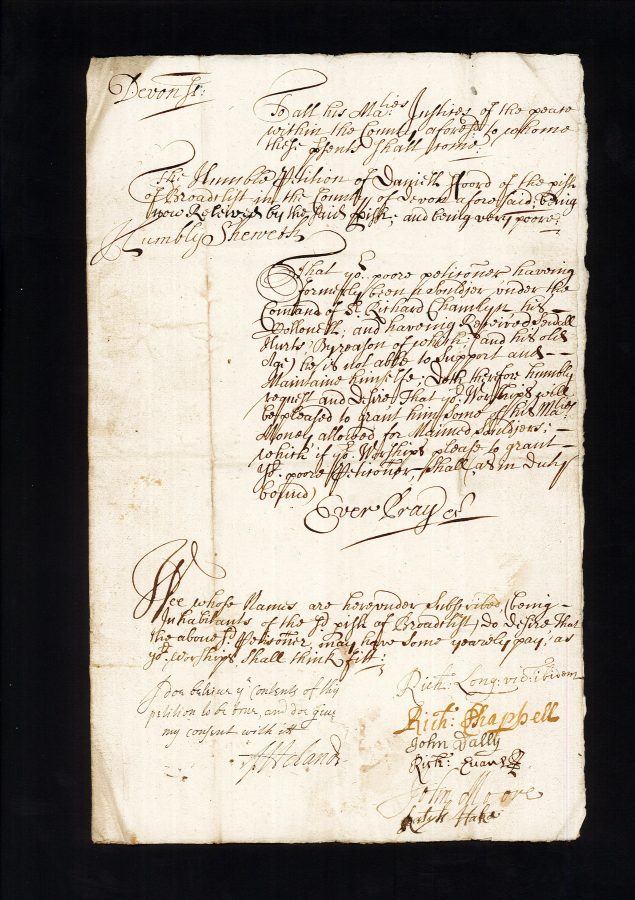 Devon ss:
To all his Ma:ties Justices of the peace
within the County aforesd: to whome
these psents shall come:
The Humble Petition of Daniell Hoord of the pish
of Broadclist in the County of Devon aforesaid; being
now Releived by the said pish; and being very poore;
Humbly Sheweth
That yor. poore petitioner haveing
formerly been a souldjer under the
Comand of Sr. Richard Chamlyn his
Collonell; and haveing Received sevall
Hurts, (By reason of which; and his old
Age) he is not able to support and
Maintaine himselfe; Doth therefore humbly
request and desire That yor. Worships will
be pleased to grant him some of his Maties
Money allowed for Maimed Souldjers;
which if yor. Worships please to grant
Yor. poore Petitioner, shall (as in duty
bound)
Ever Pray &c
Wee whose Names are hereunder subscribed, (being
Inhabitants of the sd. pish of Broadclist) do desire that
the above sd. Petitioner, may have some yearely pay, as
yor. worships shall think fitt:
I doe believe ye contents of this
petition to be true, and doe give
my consent with itt
Rich: Long: vic: ibidem
Rich: Chappell
John Dally
Rich:
John Moore
Hake